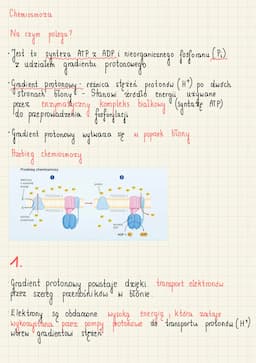 Chemiosmoza
Na czym polega?
• Jest to synteza ATP z ADP i nieorganicznego fosforanu (Pi)
z udziałem gradientu protonowego
• Gradient protonowy - różnica stężeń protonów (H⁺) po dwóch
stronach błony. Stanowi źródło energii używane
przez enzymatyczny kompleks białkowy (syntazę ATP)
do przeprowadzenia fosforylacji
• Gradient protonowy wytwarza się w poprzek błony
Przebieg chemiosmozy
Przebieg chemiosmozy
1
2
ADP + Pi
ATP
1.
Gradient protonowy powstaje dzięki transportowi elektronów
przez szereg przenośników w błonie
Elektrony są obdarzone wysoką energią, która zostaje
wykorzystana przez pompy protonowe do transportu protonów (H⁺)
wbrew gradientowi stężeń